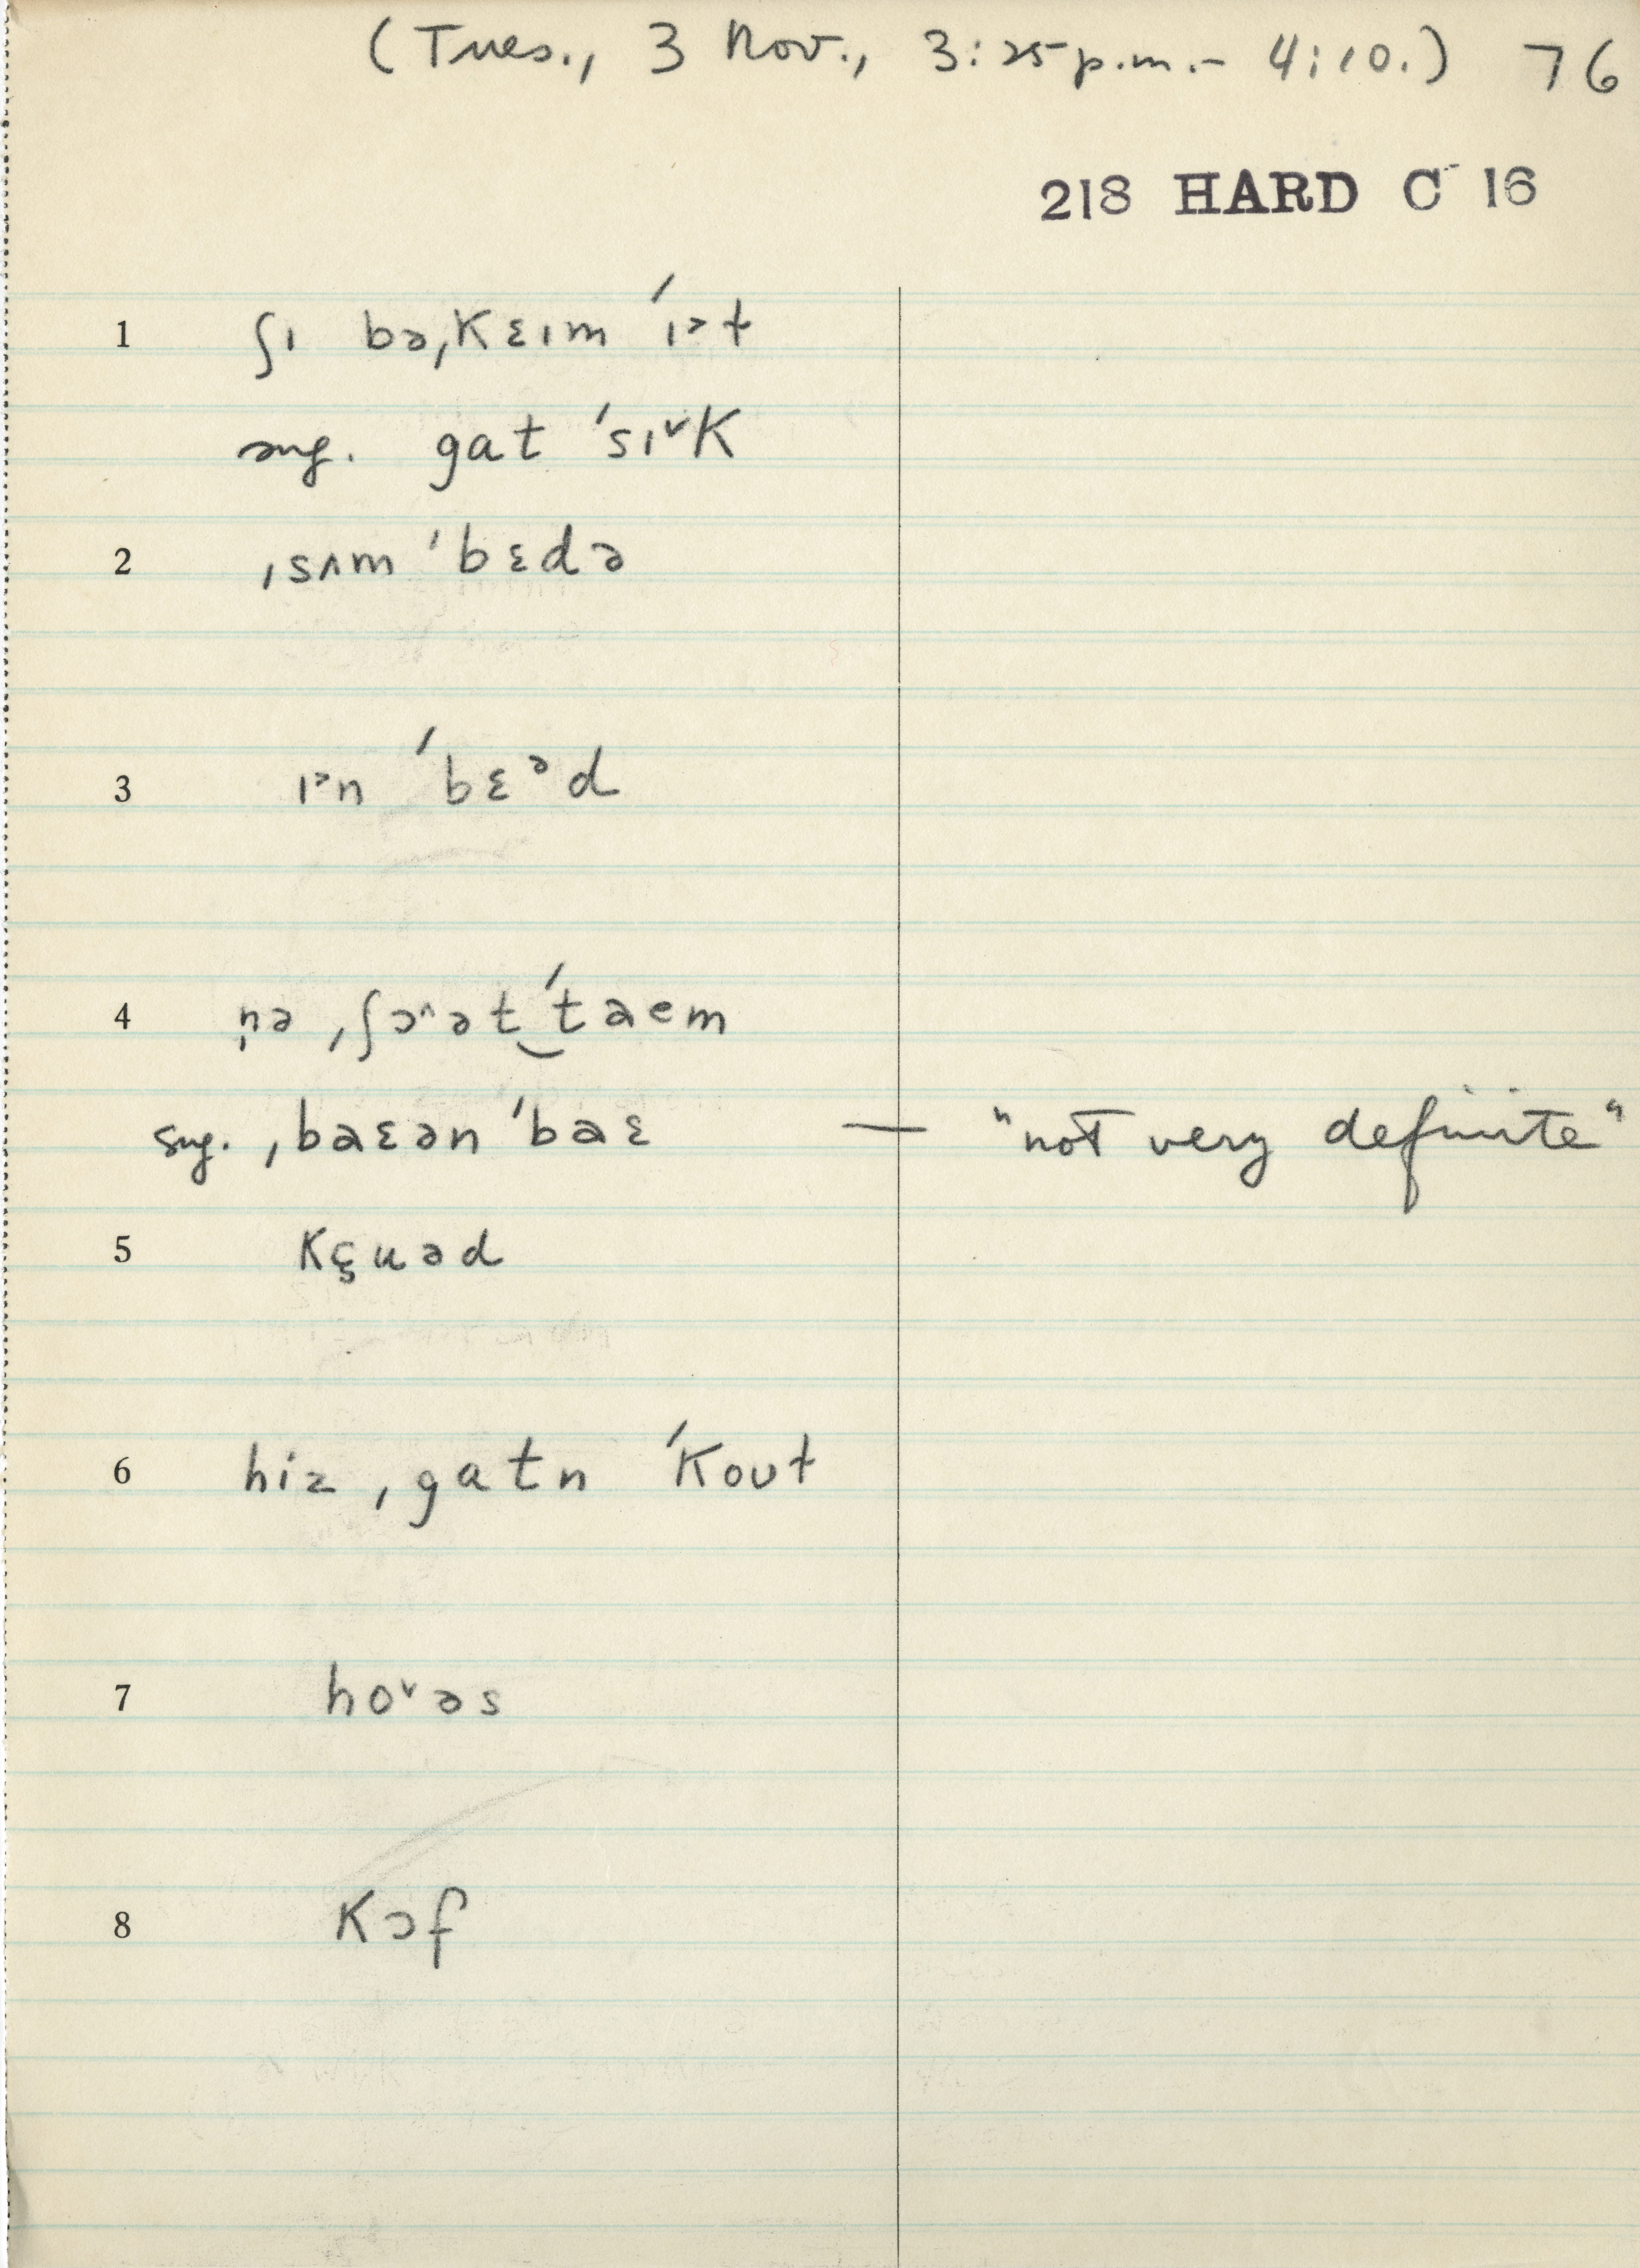 (Tues., 3 Nov., 3:25 p.m. – 4:10.) 76
218 HARD C 16
1 ʃɪ bəˌkɛɪm ˈɪᵊt
sug. gat ˈsɪ˅k
2 ˌsʌm ˈbɛdə
3 ɪᵊn ˈbɛᵊd
4 n̩ə ˌʃɔ^ət‿ˈtaem
sug. ˌbaɛən ˈbaɛ — "not very definite"
5 kçuəd
6 hiz ˌgatn ˈkout
7 ho˅əs
8 kɔf